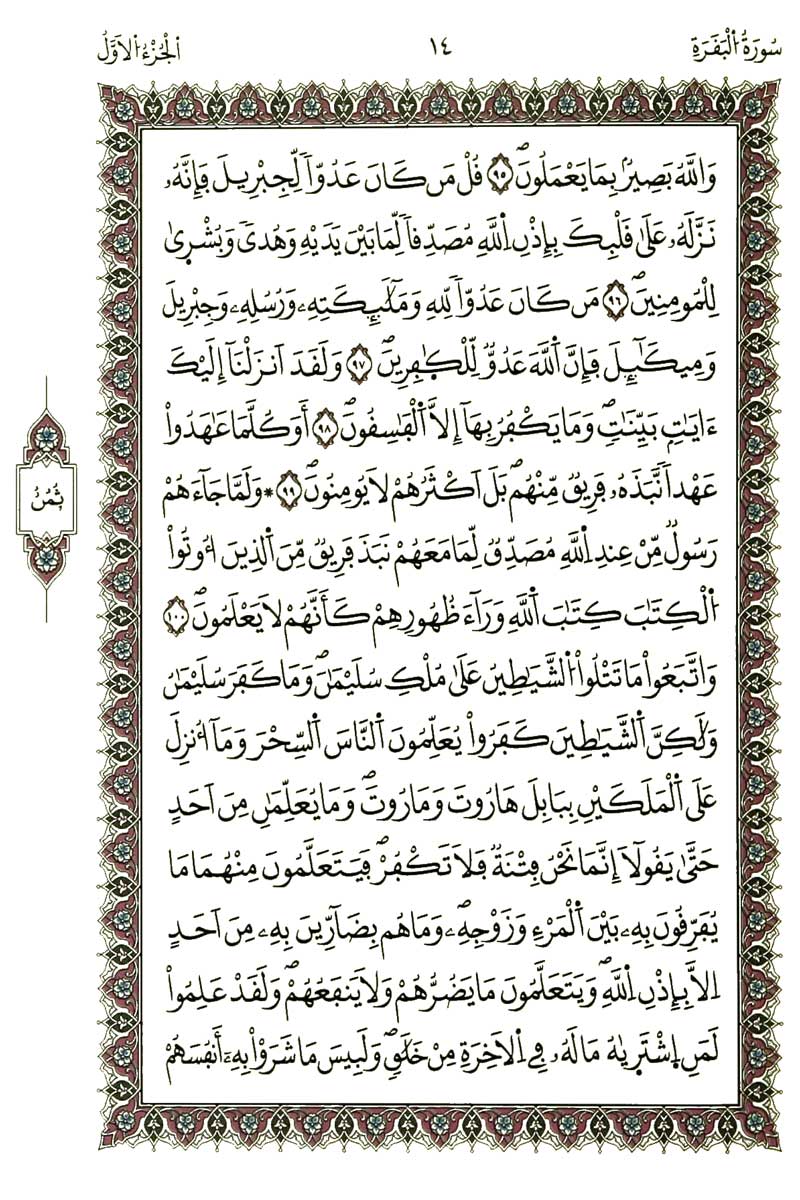 سُورَةُ الْبَقَرَةِ ١٤ الْجُزْءُ الْأَوَّلُ
وَاللَّهُ بَصِيرٌۢ بِمَا يَعْمَلُونَۖ ٩٥ قُلْ مَن كَانَ عَدُوّاٗ لِّجِبْرِيلَ فَإِنَّهُۥ
نَزَّلَهُۥ عَلَىٰ قَلْبِكَ بِإِذْنِ اِ۬للَّهِ مُصَدِّقاٗ لِّمَا بَيْنَ يَدَيْهِ وَهُدىٗ وَبُشْر۪ىٰ
لِلْمُومِنِينَۖ ٩٦ مَن كَانَ عَدُوّاٗ لِّلهِ وَمَلَٰٓئِكَتِهِۦ وَرُسُلِهِۦ وَجِبْرِيلَ
وَمِيكَٰٓئِلَ فَإِنَّ اَ۬للَّهَ عَدُوّٞ لِّلْكٰ۪فِرِينَۖ ٩٧ وَلَقَدَ اَنزَلْنَآ إِلَيْكَ
ءَايَٰتِۢ بَيِّنَٰتٖۖ وَمَا يَكْفُرُ بِهَآ إِلَّا اَ۬لْفَٰسِقُونَۖ ٩٨ أَوَكُلَّمَا عَٰهَدُواْ
عَهْداٗ نَّبَذَهُۥ فَرِيقٞ مِّنْهُمۖ بَلَ اَكْثَرُهُمْ لَا يُومِنُونَۖ ٩٩ * وَلَمَّا جَآءَهُمْ
رَسُولٞ مِّنْ عِندِ اِ۬للَّهِ مُصَدِّقٞ لِّمَا مَعَهُمْ نَبَذَ فَرِيقٞ مِّنَ اَ۬لذِينَ أُوتُواْ
اُ۬لْكِتَٰبَ كِتَٰبَ اَ۬للَّهِ وَرَآءَ ظُهُورِهِمْ كَأَنَّهُمْ لَا يَعْلَمُونَۖ ١٠٠
وَاتَّبَعُواْ مَا تَتْلُواْ اُ۬لشَّيَٰطِينُ عَلَىٰ مُلْكِ سُلَيْمَٰنَۖ وَمَا كَفَرَ سُلَيْمَٰنُ
وَلَٰكِنَّ اَ۬لشَّيَٰطِينَ كَفَرُواْ يُعَلِّمُونَ اَ۬لنَّاسَ اَ۬لسِّحْرَ وَمَآ أُنزِلَ
عَلَى اَ۬لْمَلَكَيْنِ بِبَابِلَ هَٰرُوتَ وَمَٰرُوتَۖ وَمَا يُعَلِّمَٰنِ مِنَ اَحَدٍ
حَتَّىٰ يَقُولَآ إِنَّمَا نَحْنُ فِتْنَةٞ فَلَا تَكْفُرْۖ فَيَتَعَلَّمُونَ مِنْهُمَا مَا
يُفَرِّقُونَ بِهِۦ بَيْنَ اَ۬لْمَرْءِ وَزَوْجِهِۦۖ وَمَا هُم بِضَآرِّينَ بِهِۦ مِنَ اَحَدٍ
اِلَّا بِإِذْنِ اِ۬للَّهِۖ وَيَتَعَلَّمُونَ مَا يَضُرُّهُمْ وَلَا يَنفَعُهُمْۖ وَلَقَدْ عَلِمُواْ
لَمَنِ اِ۪شْتَر۪يٰهُ مَا لَهُۥ فِے اِ۬لَاخِرَةِ مِنْ خَلَٰقٖۖ وَلَبِيسَ مَا شَرَوْاْ بِهِۦٓ أَنفُسَهُمْ
ثُمُنُ